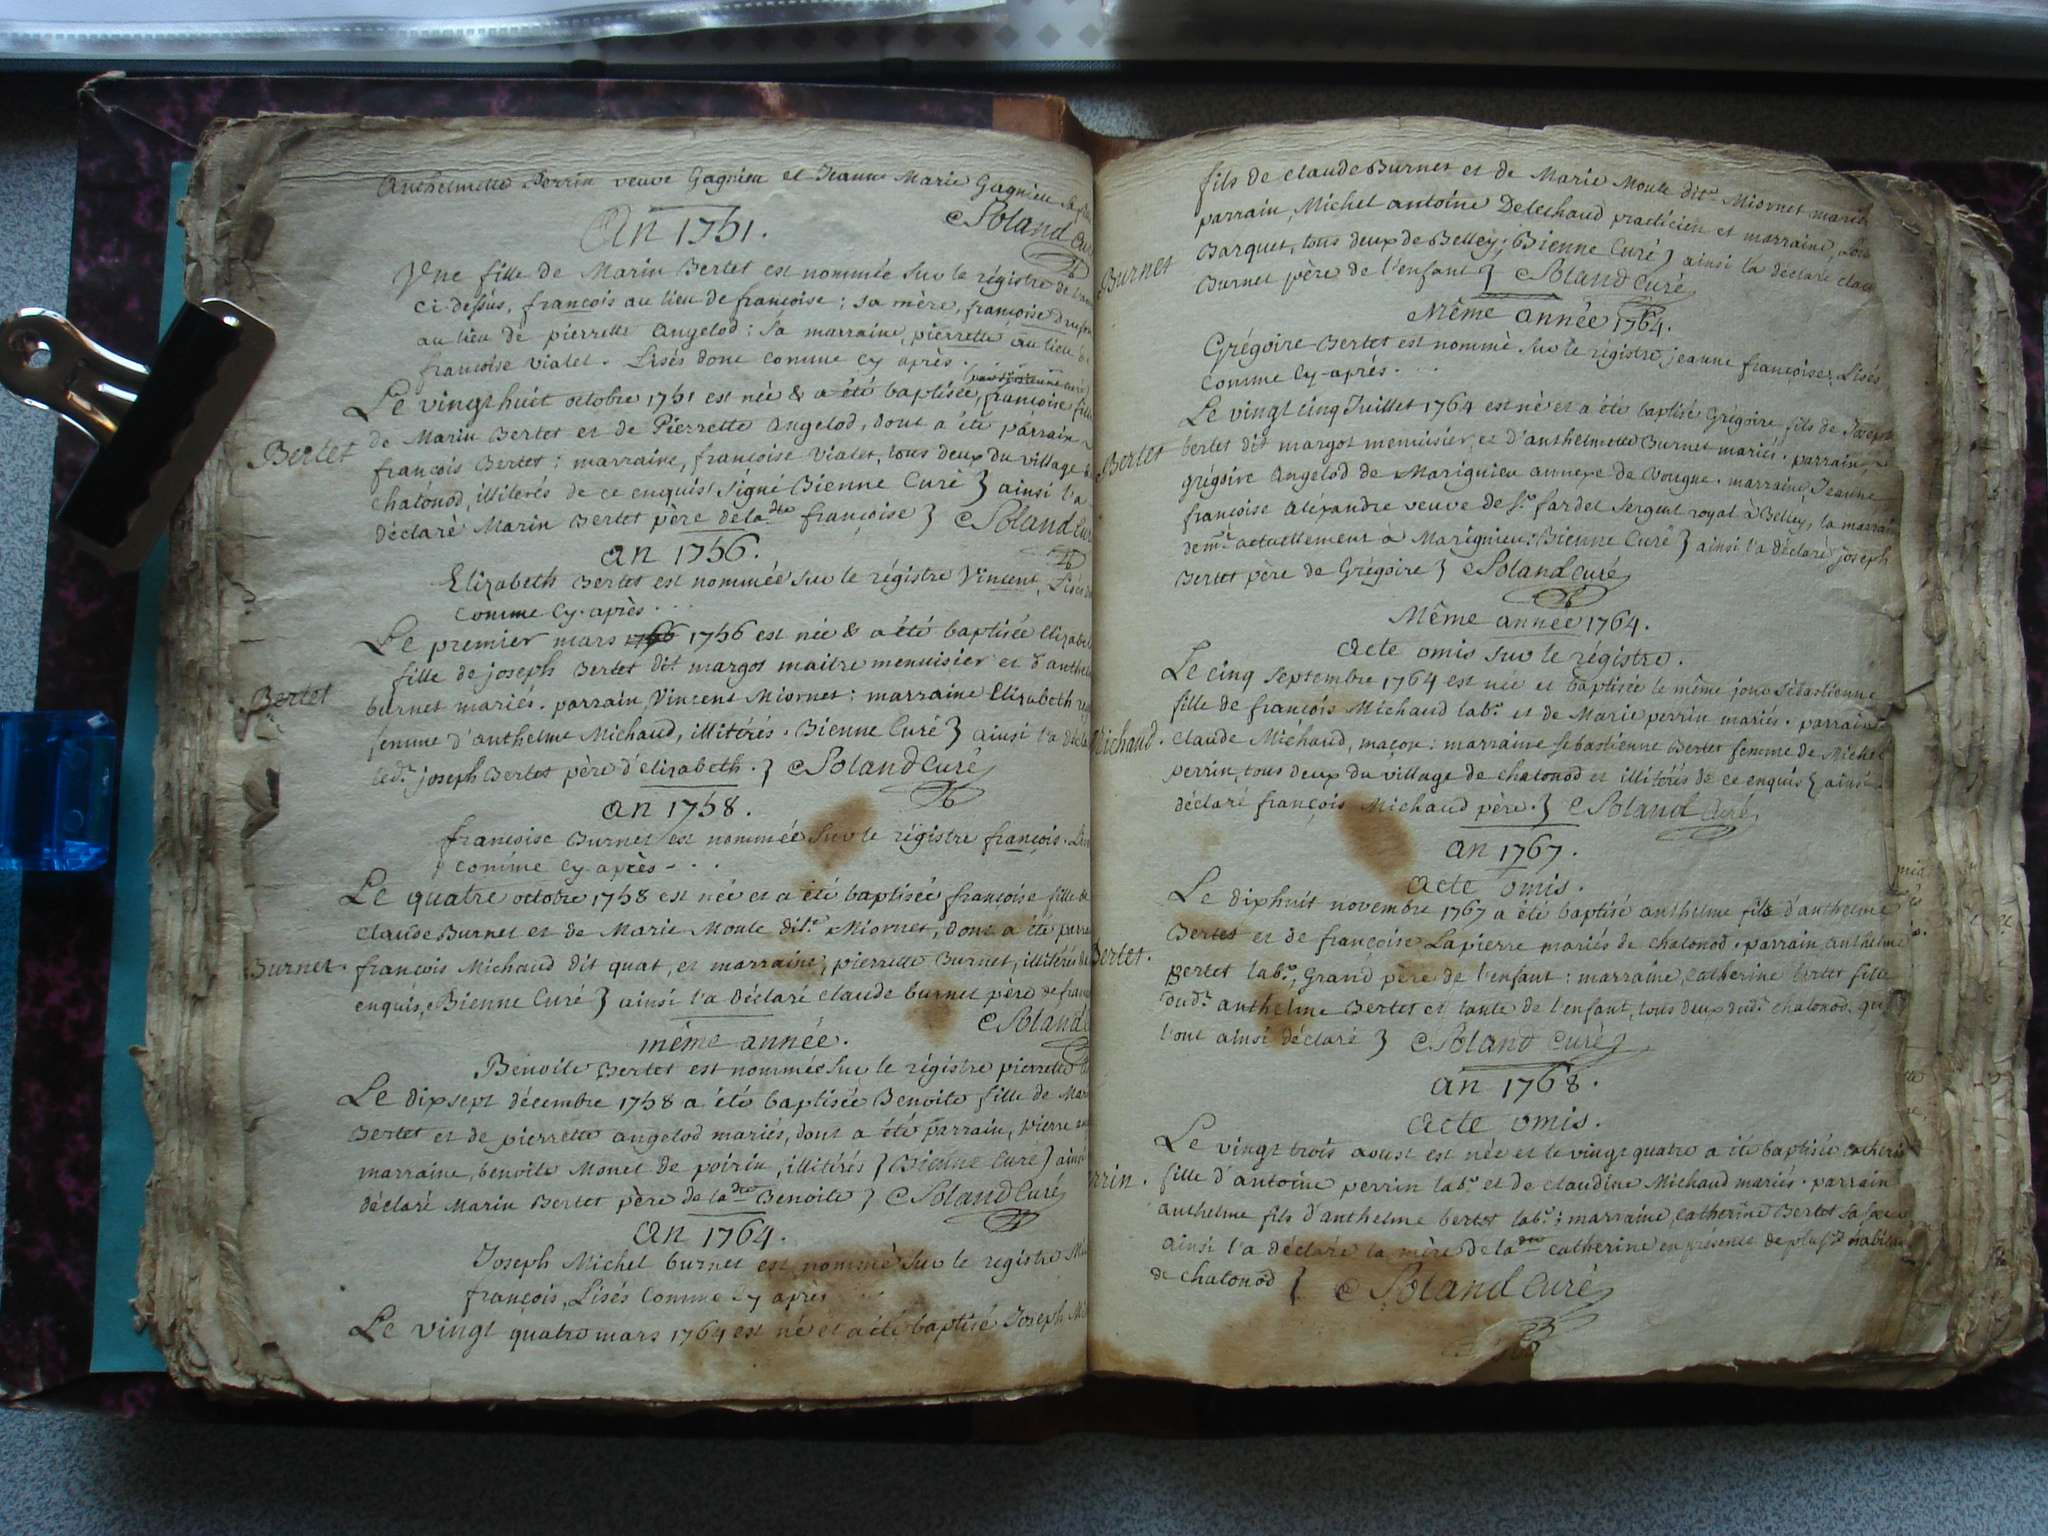 Anthelmette Perrin veuve Gagnieu et Jeanne Marie Gagnieu sa fille
An 1751.
Soland Cur
Une fille de Marin Bertet est nommée sur le régistre de l'an
ci-dessus, françois au lieu de françoise ; sa mère, françoise
au lieu de pierrette Angelod : sa marraine, pierrette au lieu de
françoise vialet. Lisés donc comme cy après . .
Le vingt huit octobre 1751 est née & a été baptisée, françoise fille
Bertet
de Marin Bertet et de Pierrette Angelod, dont a été parrain
françois Bertet : marraine, françoise vialet, tous deux du village de
chatonod, illiterés de ce enquis signé Bienne Curé } ainsi l'a
déclaré Marin Bertet père de la dte françoise } Soland Cur
an 1756.
Elizabeth Bertet est nommée sur le régistre Vincent, Lisés
comme cy-après . . .
Le premier mars 1756 est née & a été baptisée Elizabet
fille de joseph Bertet dit margot maitre menuisier et d'anthel
Bertet
burnet mariés. parrain Vincent Miornet : marraine Elizabeth
femme d'anthelme Michaud, illitérés. Bienne Curé } ainsi l'a décla
led.t joseph Bertet père d'elizabeth. } Soland Curé
an 1758.
françoise Burnet est nommée sur le régistre françois. Lis
comme cy après . . .
Le quatre octobre 1758 est née et a été baptisée françoise fille de
claude Burnet et de Marie Monte dit.e Miornet, dont a été parra
Burnet.
françois Michaud dit quat, et marraine, pierrette Burnet, illitérés de
enquis, Bienne Curé } ainsi l'a déclaré claude burnet père de franç
Soland
même année.
Benoite Bertet est nommée sur le régistre pierrette
Le dixsept décembre 1758 a été baptisée Benoite fille de Mar
Bertet et de pierrette angelod mariés, dont a été parrain, pierre
marraine, benoite Monet de poirin, illitérés } Bienne Curé } ainsi
déclaré Marin Bertet père de la dte Benoite } Soland Curé
an 1764.
Joseph Michel burnet est nommé sur le registre Mi
françois, Lisés comme cy après
Le vingt quatre mars 1764 est né et a été baptisé Joseph Mi
fils de claude Burnet et de Marie Monte dit.e Miornet mariés
parrain, Michel antoine Delechaud practicien et marraine,
Barquet, tous deux de Belley ; Bienne Curé } ainsi la déclaré clau
Burnet
Burnet père de l'enfant } Soland Curé
Même année 1764.
Grégoire Bertet est nommé sur le régistre, jeanne françoise, Lisés
comme cy-après . . .
Le vingt cinq Juillet 1764 est né et a été baptisé Grégoire fils de Joseph
Bertet
bertet dit margot menuisier, et d'anthelmette Burnet mariés. parrain,
grégoire Angelod de Marignieu annexe de Vongne. marraine, Jeanne
françoise aléxandre veuve de S.r fardel sergent royal à Belley, la marrain
dem.t actuellement à Marignieu : Bienne Curé } ainsi l'a déclaré joseph
Bertet père de Grégoire } Soland Curé
Même année 1764.
acte omis sur le régistre.
Le cinq septembre 1764 est née et baptisée le même jour sébastienne
fille de françois Michaud lab.r et de Marie perrin mariés. parrain
Michaud.
claude Michaud, maçon : marraine sebastienne Bertet femme de Michel
perrin, tous deux du village de chatonod et illitérés de ce enquis } ainsi
déclaré françois Michaud père. } Soland Curé
an 1767.
acte omis.
Le dixhuit novembre 1767 a été baptisé anthelme fils d'anthelme
Bertet et de françoise Lapierre mariés de chatonod. parrain anthelme
Bertet.
Bertet lab.r, Grand père de l'enfant : marraine, catherine bertet fille
dud.t anthelme Bertet et tante de l'enfant, tous deux dud.t chatonod, qui
l'ont ainsi déclaré } Soland Curé
an 1768.
acte omis.
Le vingt trois aoust est née et le vingt quatre a été baptisée catherin
rrin.
fille d'antoine perrin lab.r et de claudine Michaud mariés. parrain
anthelme fils d'anthelme bertet lab.r ; marraine, catherine Bertet sa sœur
ainsi l'a déclaré la mère de la dte catherine en présence de plus.rs habitan
de chatonod } Soland Curé